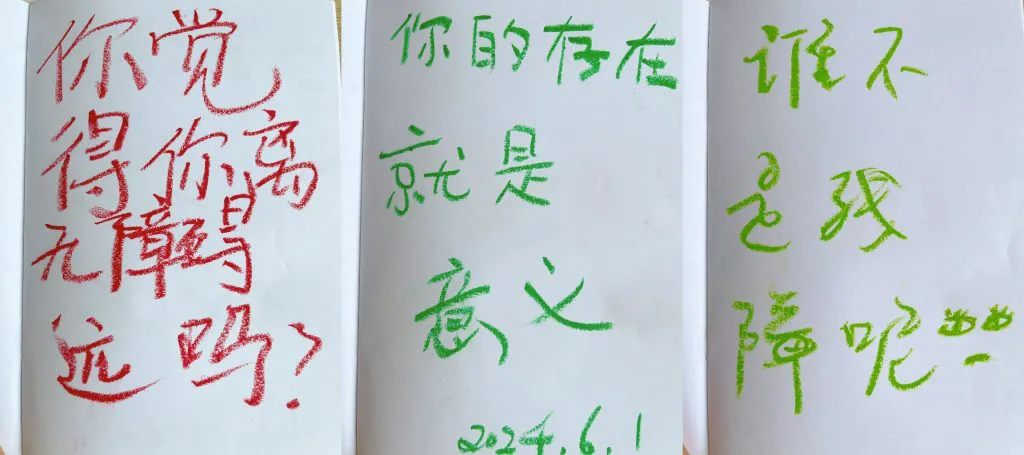 你觉
得你离
无障碍
远吗?
你的存在
就是
意义
2024.6.1
谁不
是残
障呢